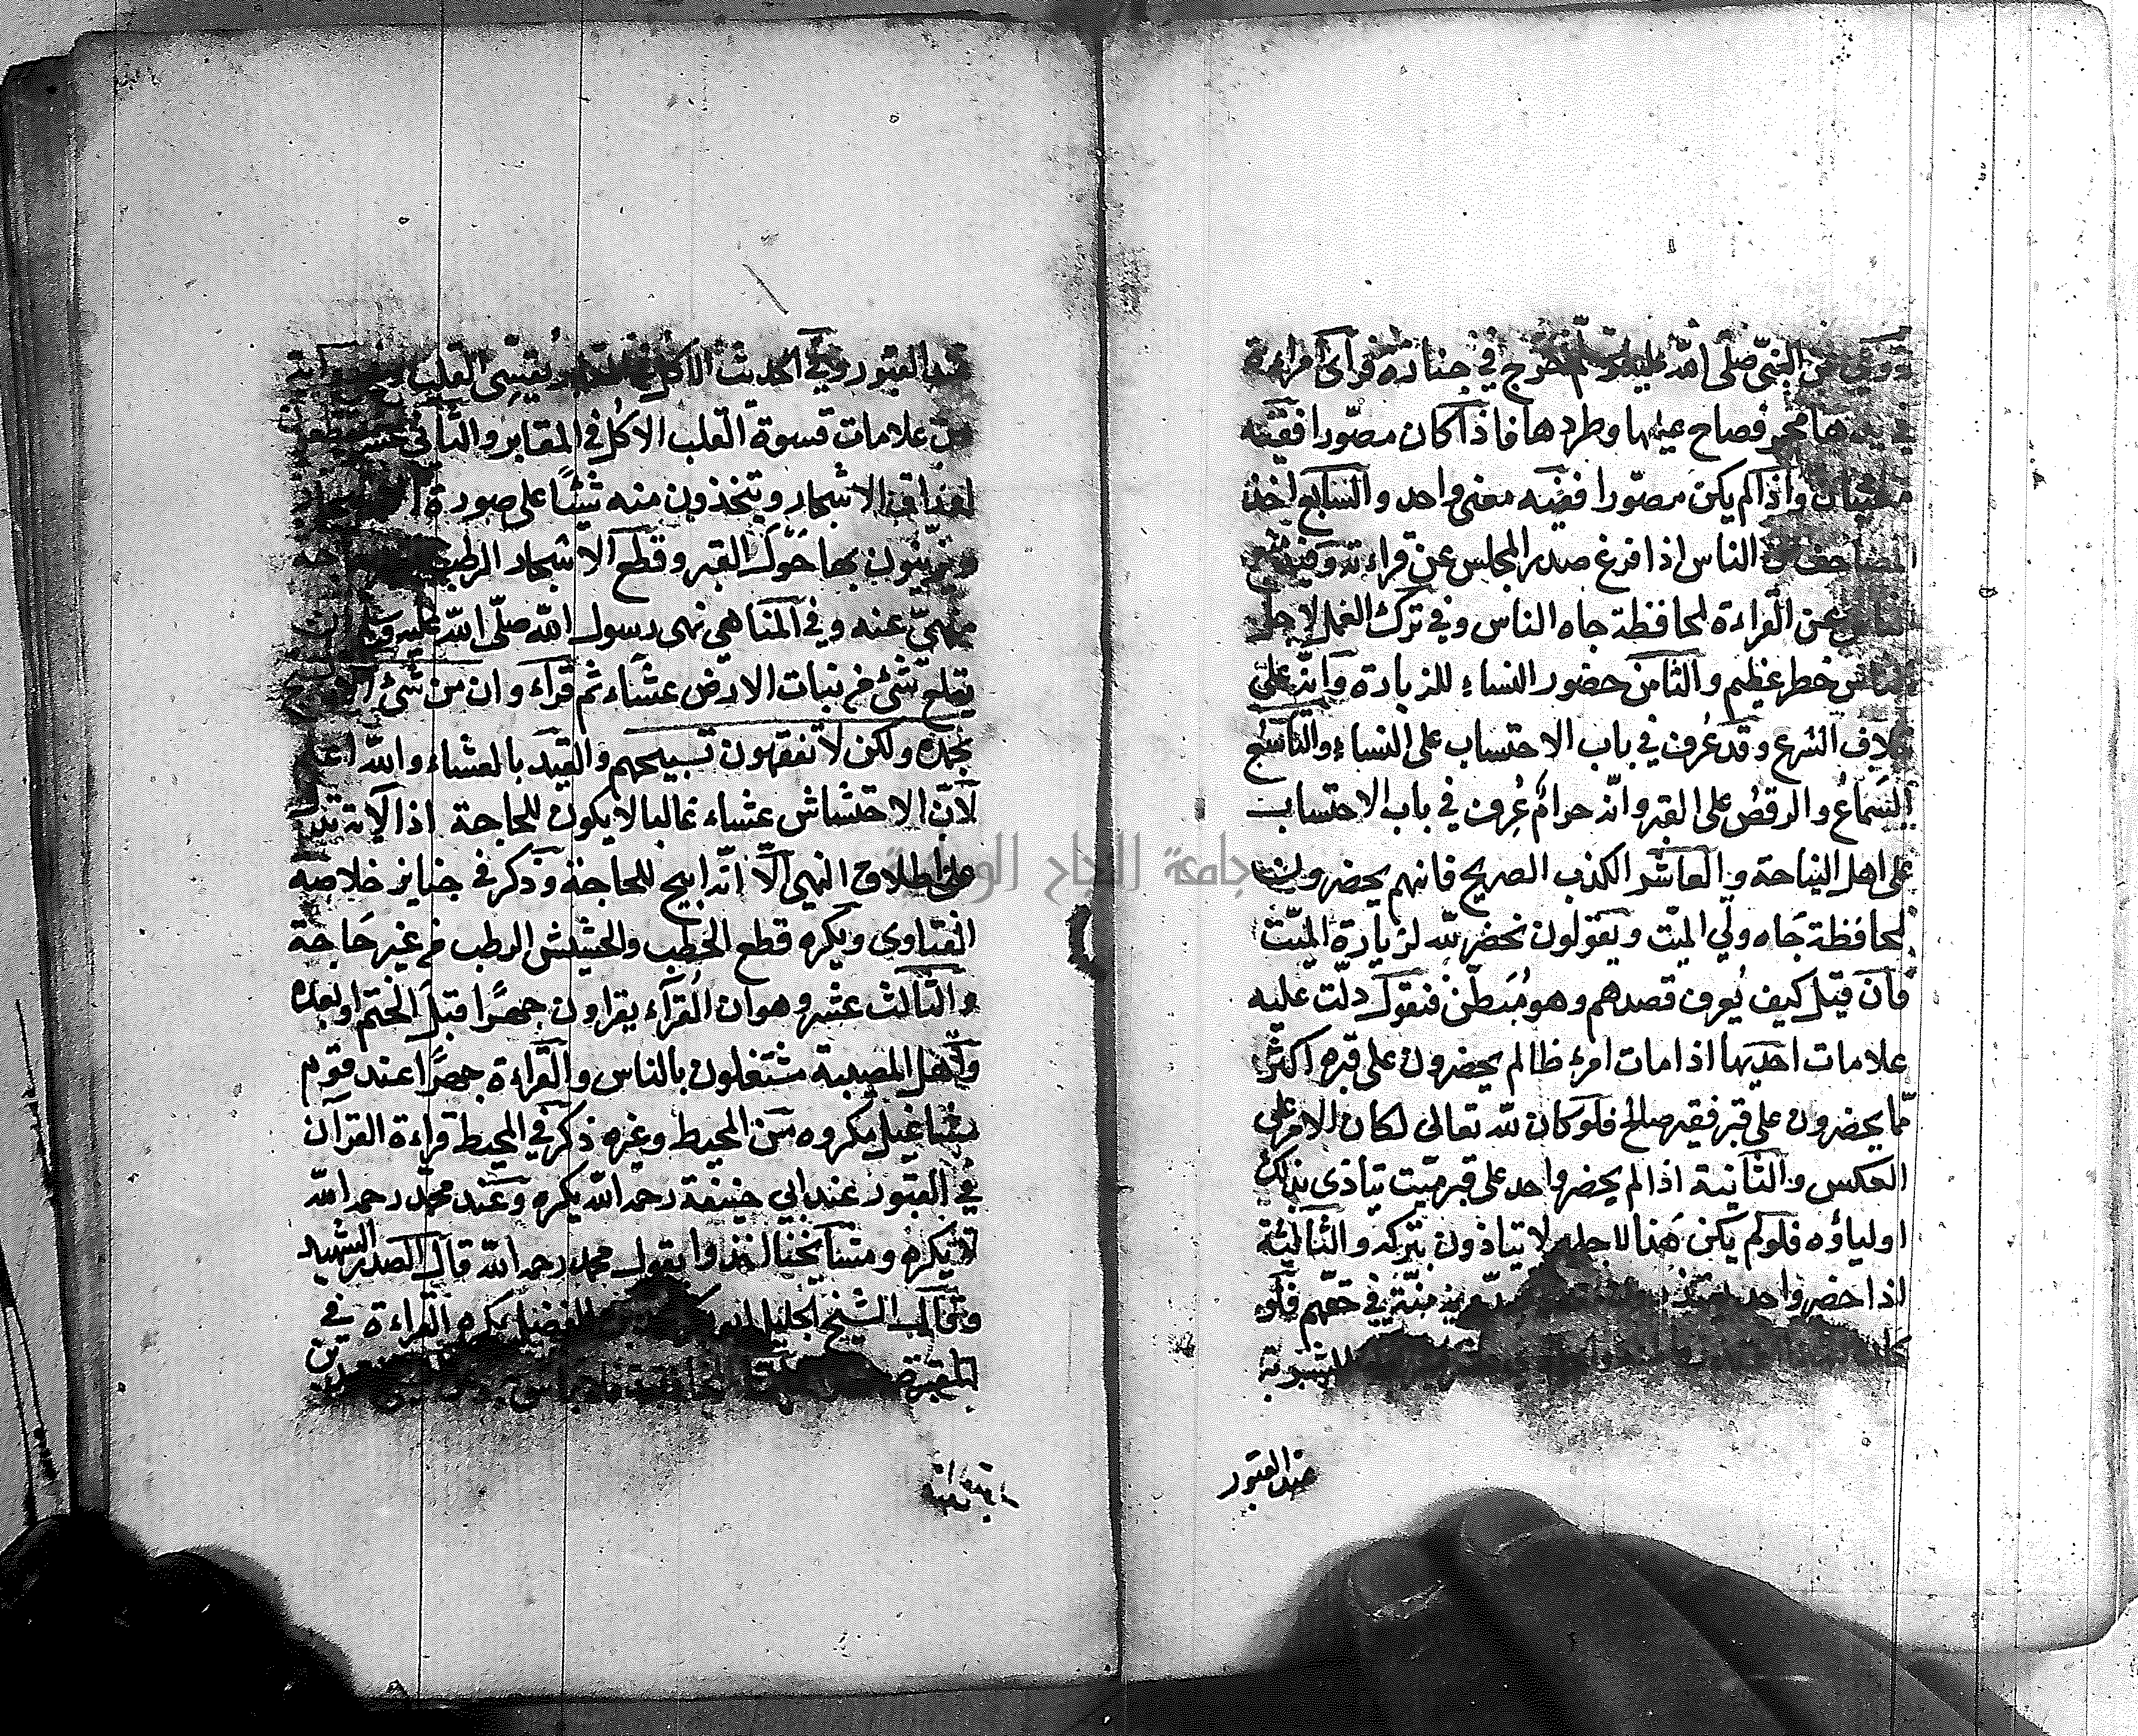 وروي عن النبي صلى الله عليه وسلم خرج في جنازة فرأى امراءة
في يدها مجمر فصاح عليها وطردها فاذا كان مصورا ففيه
معنيان واذا لم يكن مصورا ففيه معنى واحد والسابع اخذ
المصاحف من الناس اذا فرغ صدر المجلس عن قراءته وفيه منع
الناس عن القراءة لمحافظة جاه الناس وفي ترك العمل لاجل
الناس خطر عظيم والثامن حضور النساء للزيارة وانه على
خلاف الشرع وقد عُرف في باب الاحتساب على النساء والتاسع
السماعُ والرقصُ على القبر وانه حرامٌ عُرِف في باب الاحتساب
على اهل النياحة والعاشر الكذب الصريح فانهم يحضرون
لمحافظة جاه ولي الميّت ويقولون نحضر لله لزيارة الميّت
فان قيل كيف يُعرف قصدهم وهو مُبَطّنٌ فنقول دلّت عليه
علامات احديها اذا مات امرء ظالم يحضرون على قبره اكثر
مما يحضرون على قبر فقير صالح فلو كان لله تعالى لكان الامر على
العكس والثانية اذا لم يحضر واحد على قبر ميّت يتاذى بذلك
اولياؤه فلو لم يكن هذا لاجله لا يتاذون بتركه والثالثة
اذا حضر واحد منّة في حقهم فلو
للمثوبة
عند القبور
عند القبور وفي الحديث الاكل يقسى القلب
من علامات قسوة القلب الاكل في المقابر والثاني عشر يقطعون
اوراق الاشجار ويتخذون منه شيئًا على صورة
ويزيّنون بها حول القبر وقطع الاشجار الرطب
منهيّ عنه وفي المناهي نهى رسول الله صلّى الله عليه وسلم ان
يقلع شئ من نبات الارض عشاء ثم قراء وان من شئ الا يسبح
بحمده ولكن لا تفقهون تسبيحهم والقيد بالعشاء والله اعلم
لانّ الاحتشاش عشاء غالبا لا يكون للحاجة اذ الآية تدل
على اطلاق النهى الّا انّه ابيح للحاجة وذكر في جنايز خلاصة
الفتاوى ويكره قطع الحطب والحشيش الرطب من غير حاجة
والثالث عشر وهو ان القرّآء يقراون جهرًا قبل الختم او بعده
واهل المصيبة مشتغلون بالناس والقراءة جهرًا عند قوم
مشاغيل مكروه من المحيط وغيره ذكر في المحيط قراءة القرآن
في القبور عند ابي حنيفة رحمه الله يكره وعند محمد رحمه الله
لا يكره ومشايخنا اخذوا بقول محمد رحمه الله قال الصدر الشهيد
وقال الشيخ الجليل الفضل يكره القراءة في
المقبرة
جامعة النجاح الوطنية